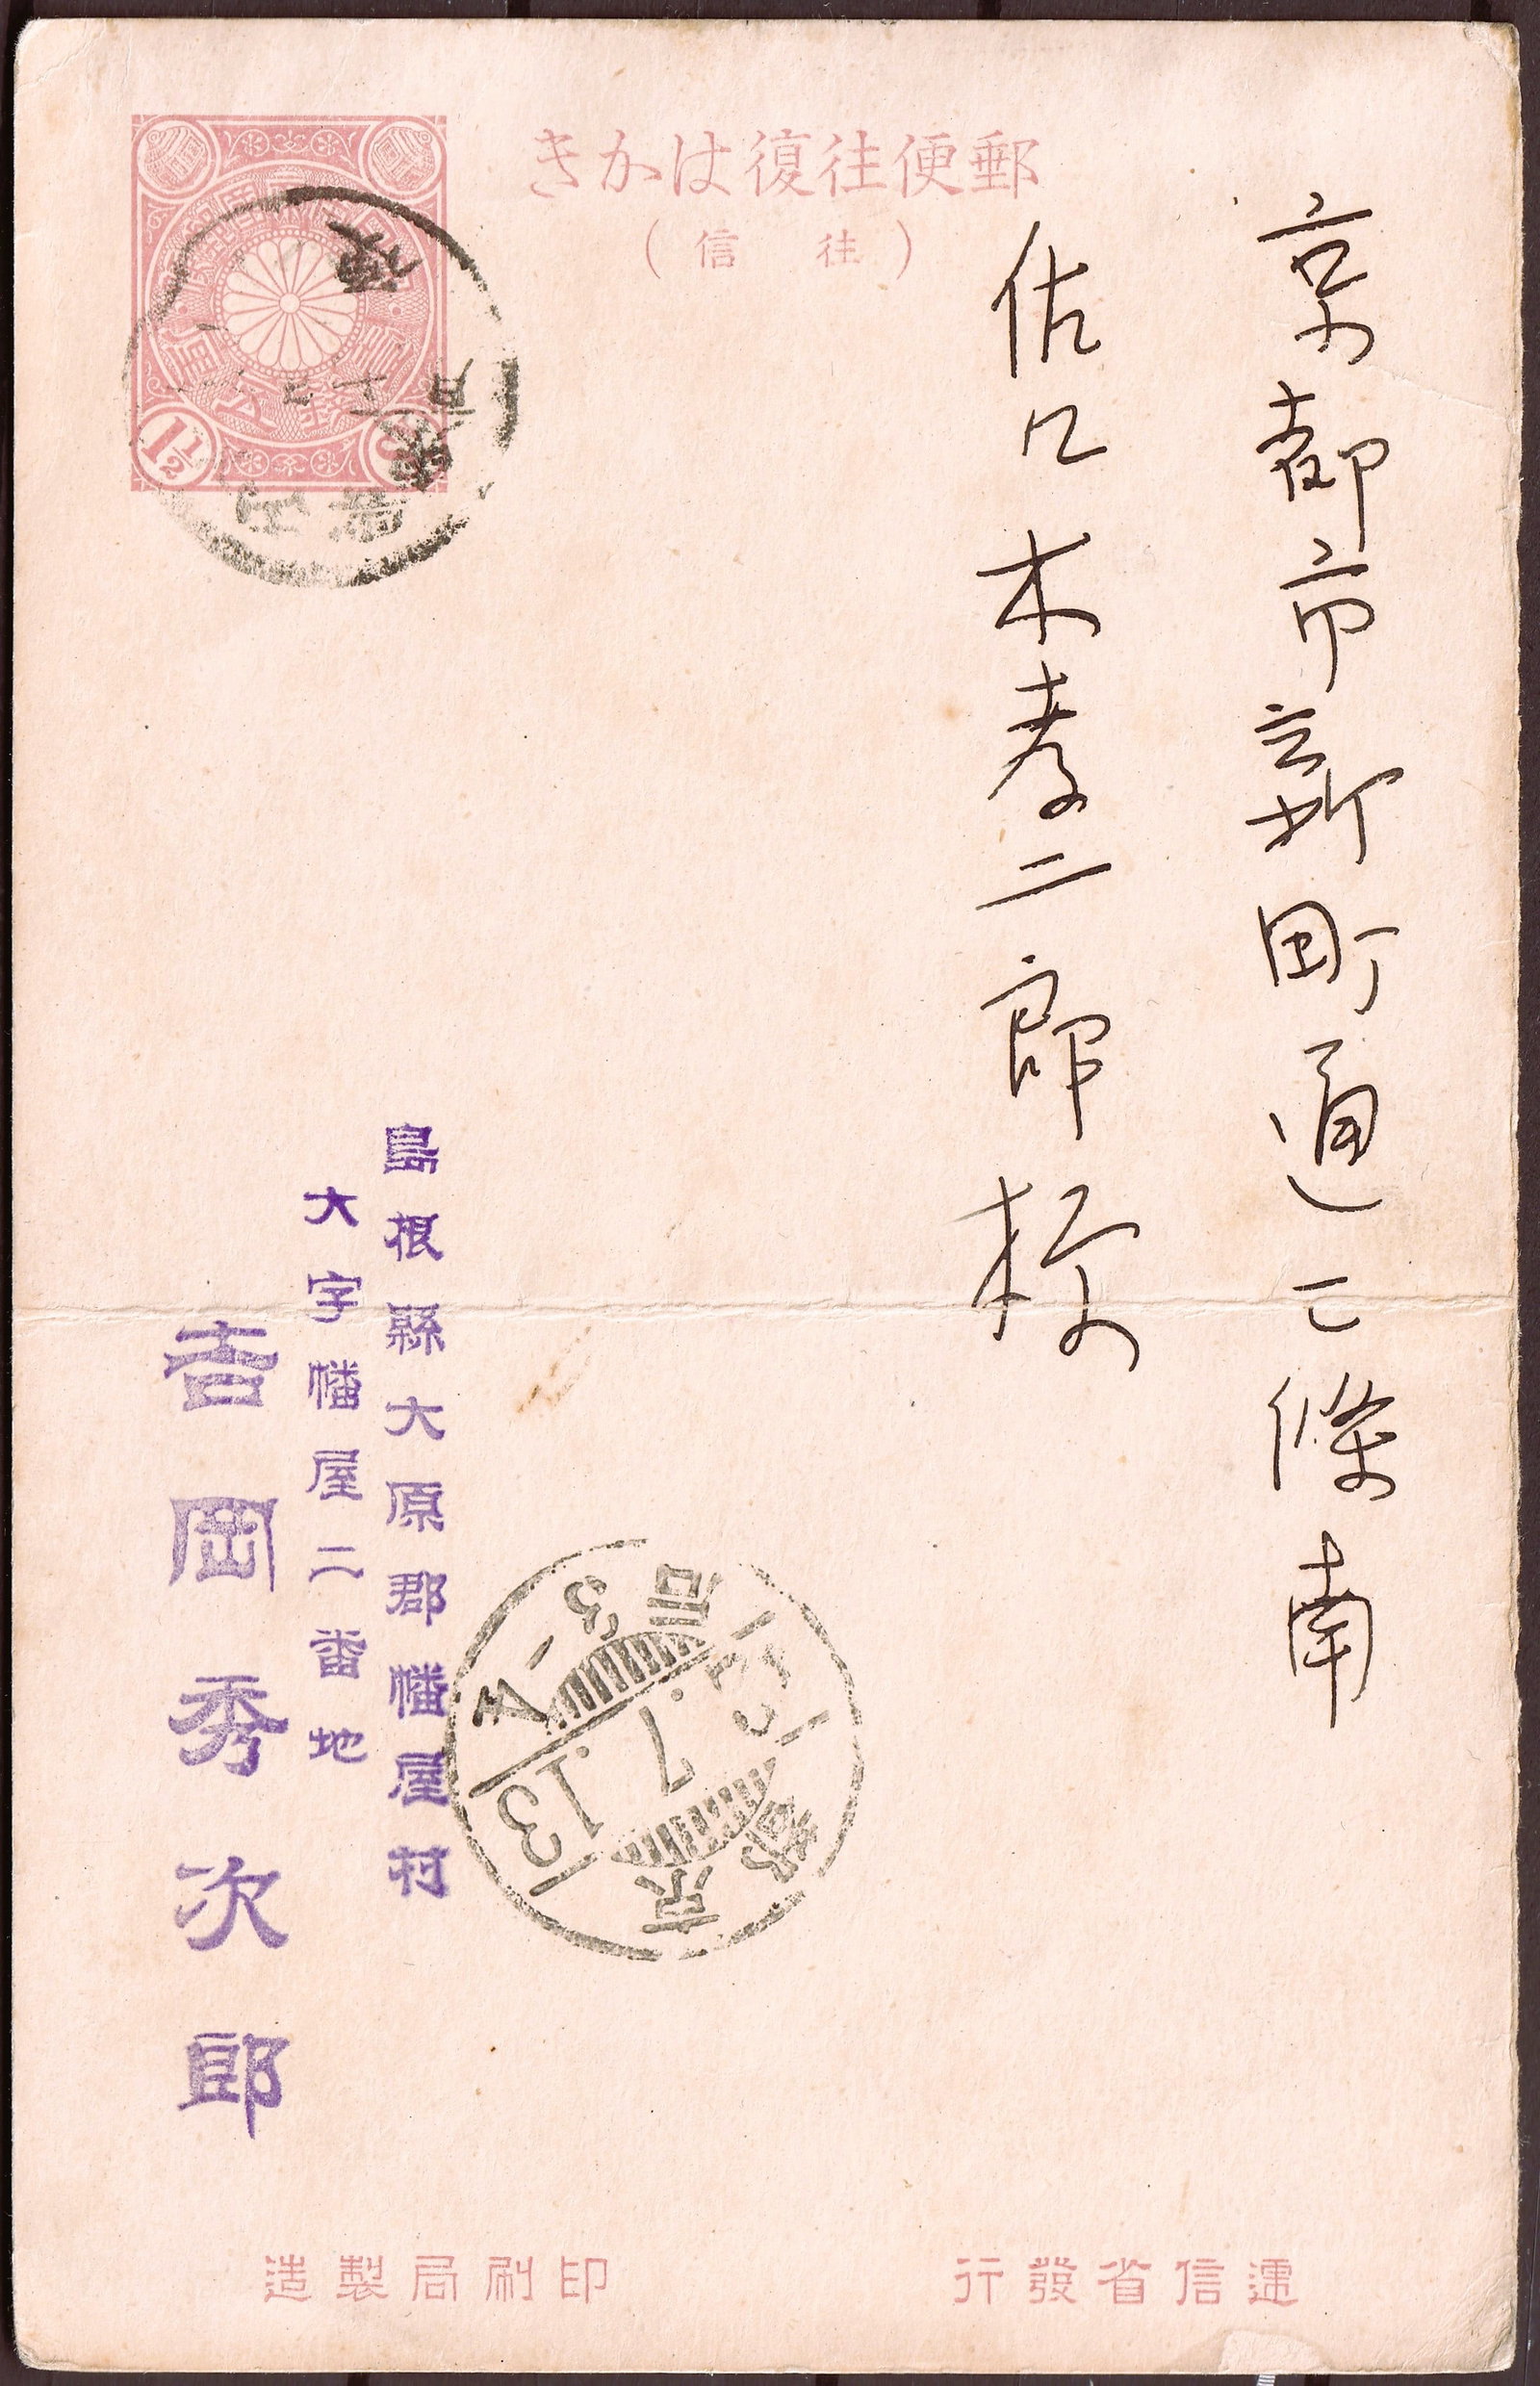 郵便往復はかき
(往信)
京都市新町通二條南
佐々木孝二郎様
島根縣大原郡幡屋村
大字幡屋二番地
吉岡秀次郎
京都
7.13
前
3-4
1½
遞信省發行
印刷局製造